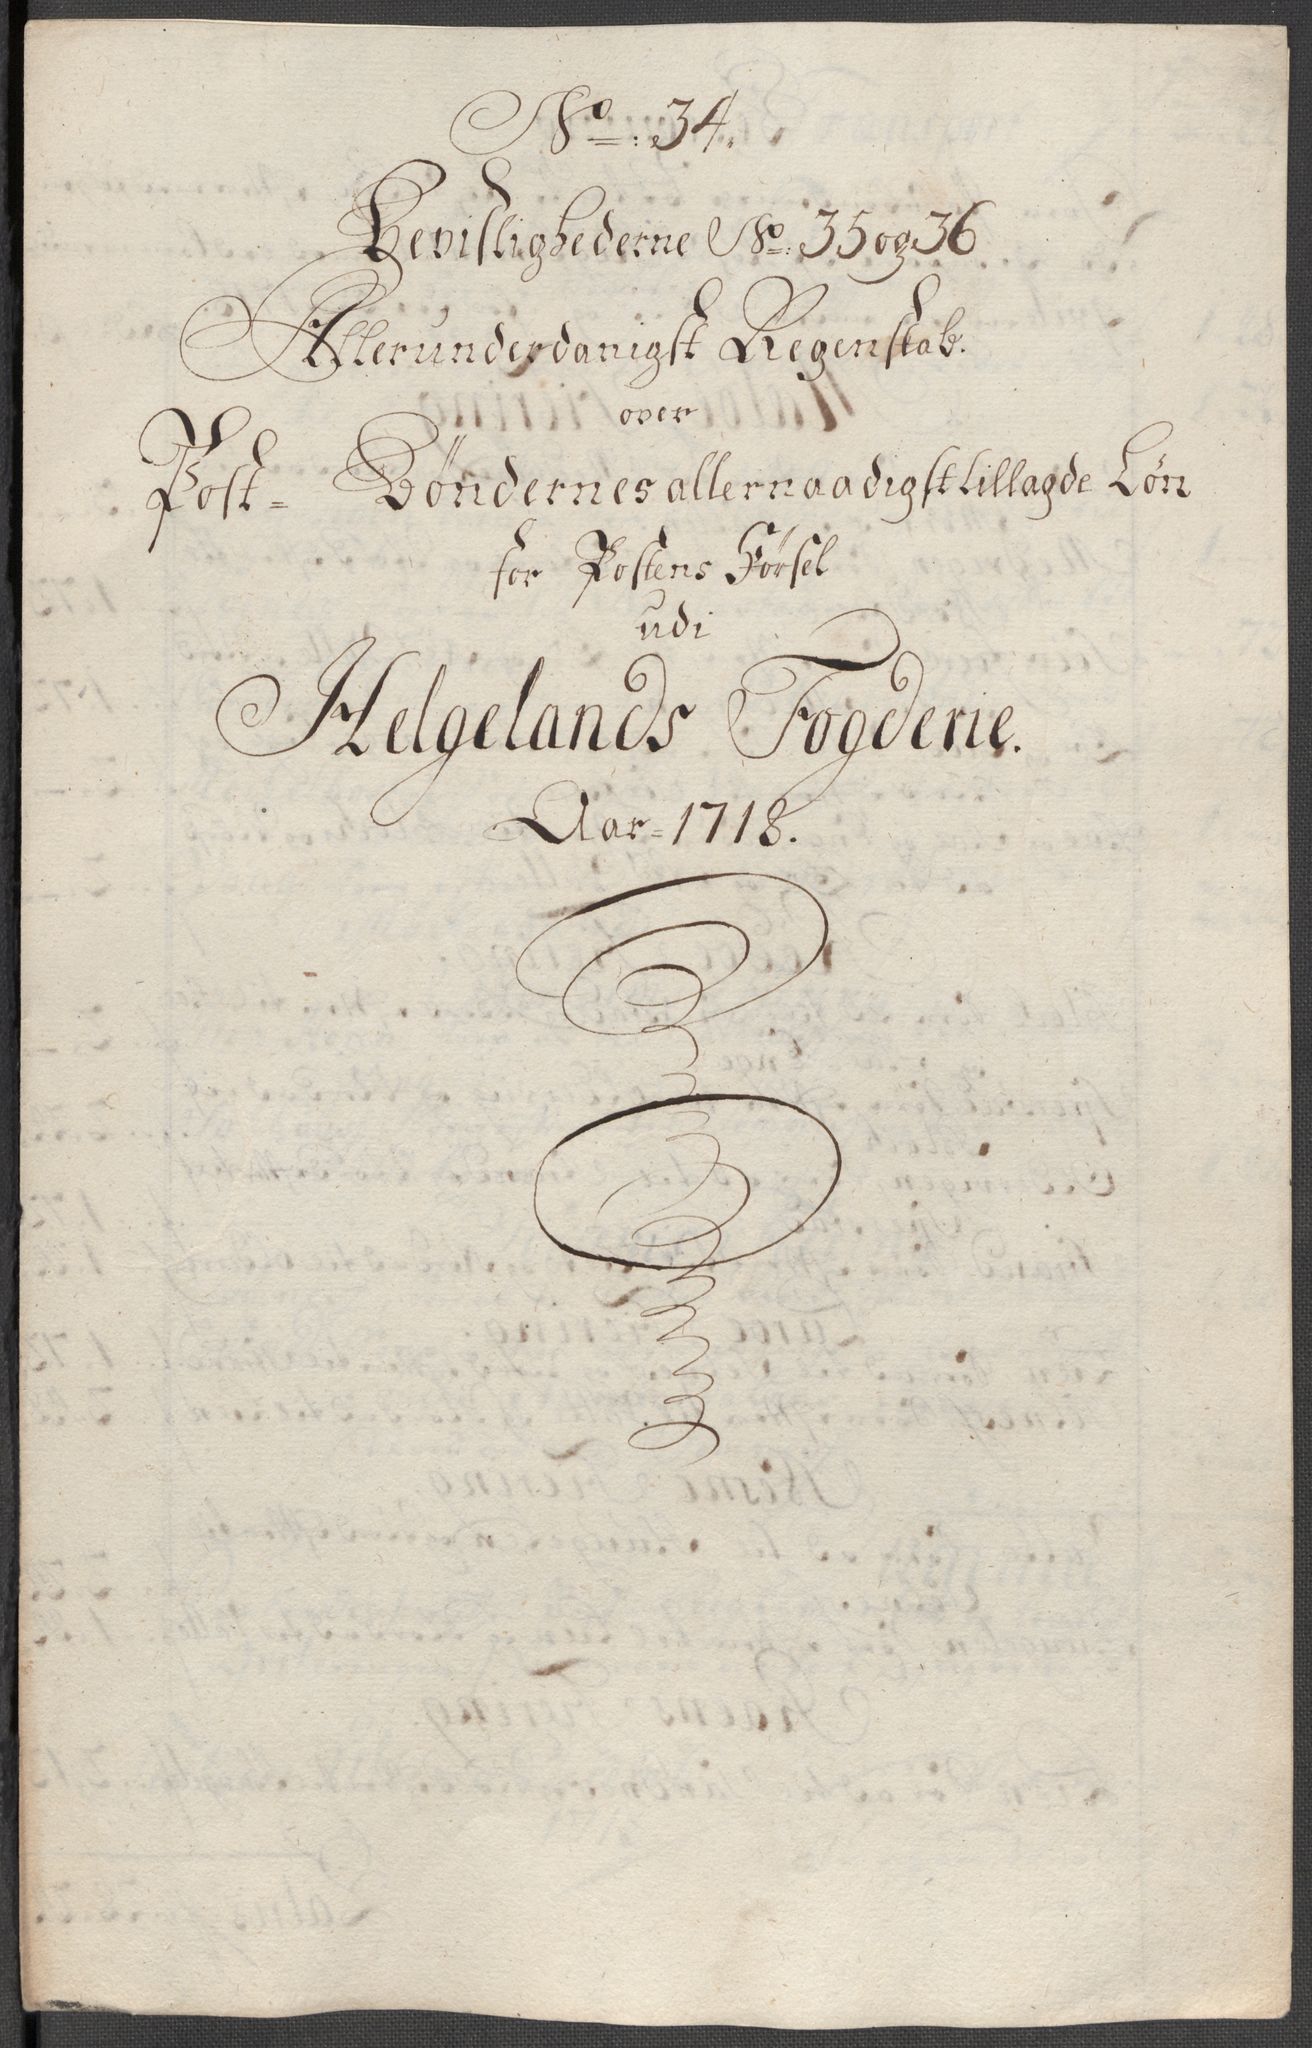 No: 34.
Bevislighederne No: 35 og 36
Allerunderdanigst Regenskab.
over
Post- Bøndernes allernaadigst tillagde Løn
for Postens Førsel
udi
Helgelands Fogderie.
Aar= 1718.